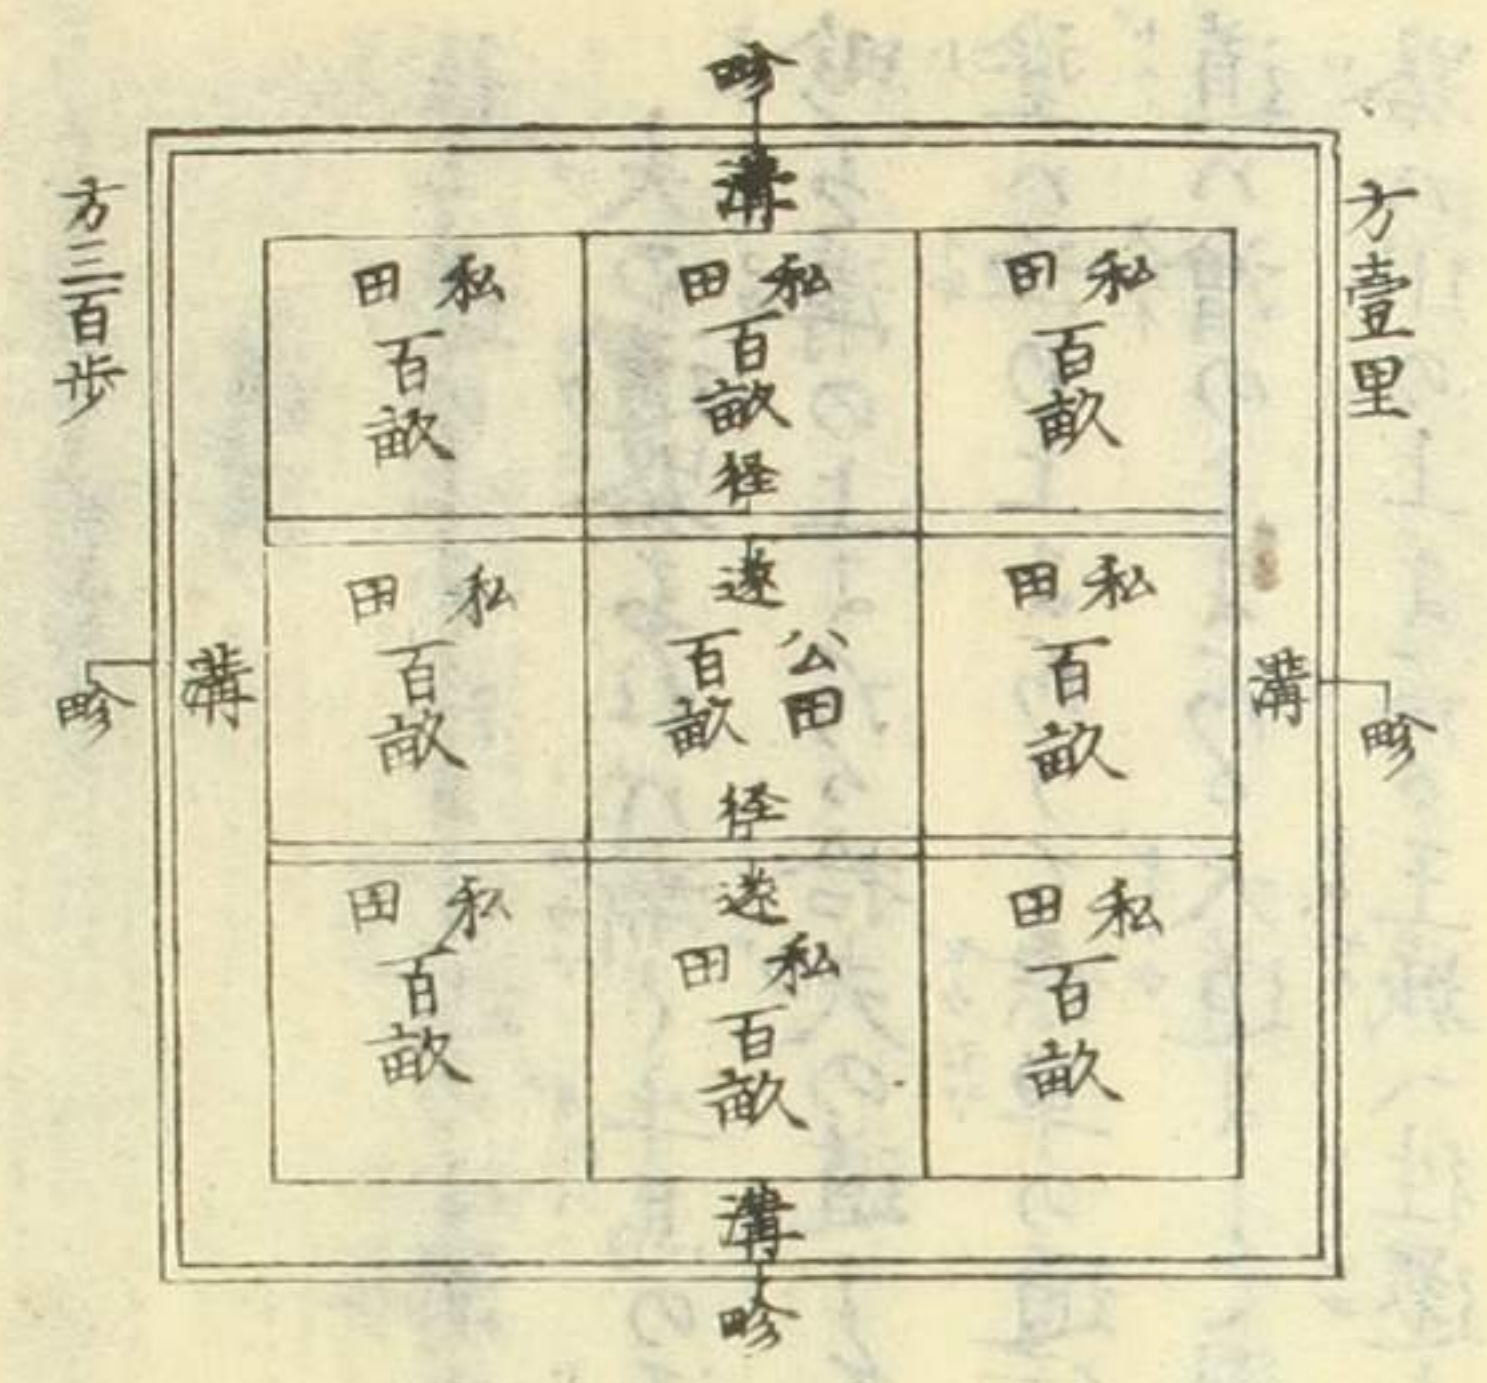 畛
溝
方壹里
方三百歩
私田
百畝
私田
百畝
径
私田
百畝
私田
百畝
遂
公田
百畝
径
私田
百畝
私田
百畝
遂
私田
百畝
私田
百畝
溝
畛
溝
畛
溝
畛